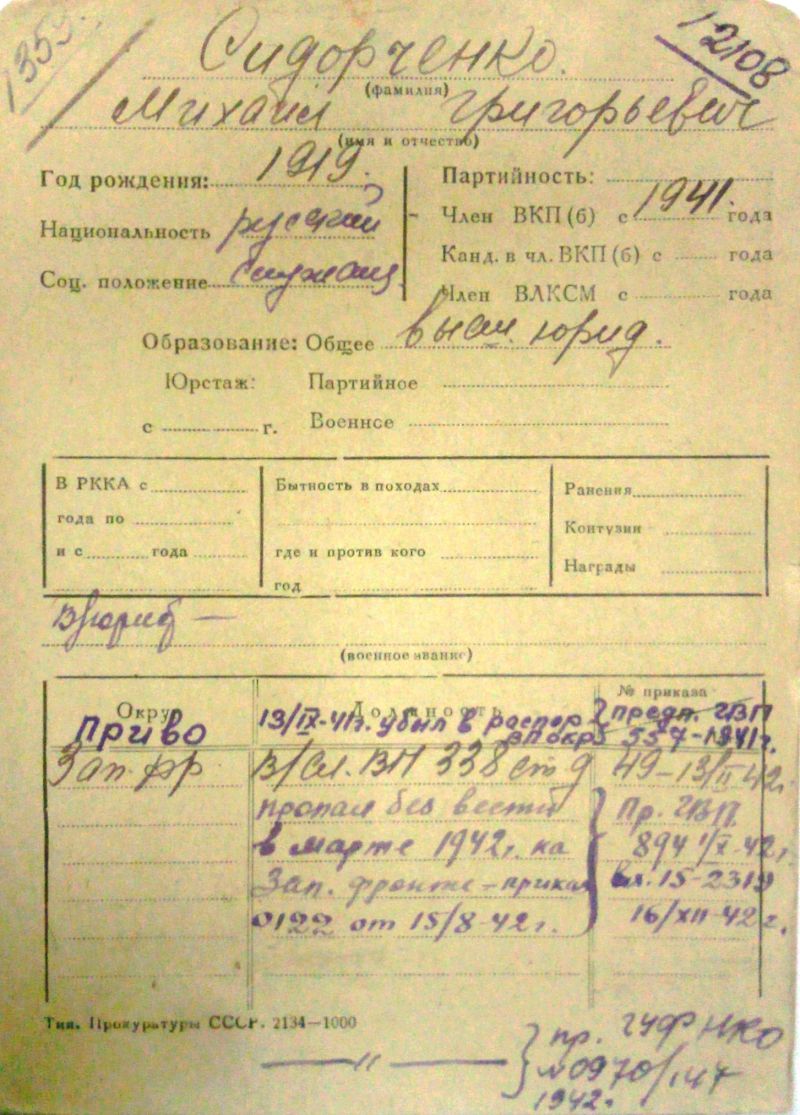 1353
12108
Сидорченко.
(фамилия)
Михаил Григорьевич
(имя и отчество)
Год рождения: 1919.
Национальность русский
Соц. положение служащ
Партийность:
Член ВКП(б) с 1941. года
Канд. в чл. ВКП(б) с года
Член ВЛКСМ с года
Образование: Общее высш. юрид.
Юрстаж: Партийное
с г. Военнсе
В РККА с
года по
и с года
Бытность в походах
где и против кого
год
Ранения
Контузии
Награды
В/юрист —
(военное звание)
Округ Должность № приказа
ПриВО 13/IX-41г. убыл в распор предп. ГВП
ВП окр 557-1941г.
Зап. фр В/сл. ВП 338 стд 49-13/II-42г
пропал без вести Пр. ГВП
в марте 1942г. на 894 1/X-42г.
Зап. фронте – приказ вх. 15-2319
0122 от 15/8-42г. 16/XII-42г.
Тип. Прокуратуры СССР. 2134—1000
— " — пр. ГУФ НКО
№ 0970/
1942г.